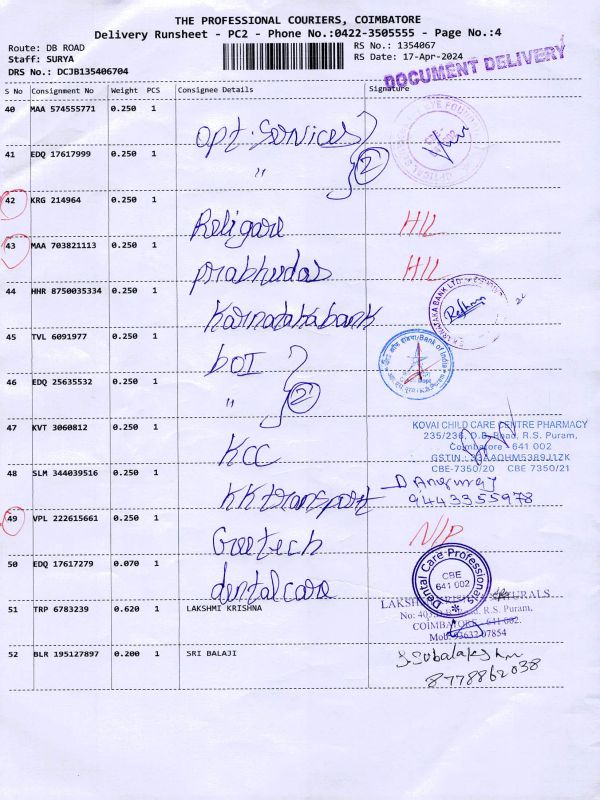 THE PROFESSIONAL COURIERS, COIMBATORE
Delivery Runsheet - PC2 - Phone No.:0422-3505555 - Page No.:4
Route: DB ROAD
Staff: SURYA
DRS No.: DCJB135406704
RS No.: 1354067
RS Date: 17-Apr-2024
DOCUMENT DELIVERY
S No Consignment No Weight PCS Consignee Details Signature
40 MAA 574555771 0.250 1 opt. Services
41 EDQ 17617999 0.250 1 " 2
42 KRG 214964 0.250 1 Religare H/L
43 MAA 703821113 0.250 1 prabhudas H/L
44 HHR 8750035334 0.250 1 Karnataka bank
KARNATAKA BANK LTD
45 TVL 6091977 0.250 1 boI
Bank of India
46 EDQ 25635532 0.250 1 " 2
47 KVT 3060812 0.250 1 KCC
KOVAI CHILD CARE CENTRE PHARMACY
235/236, D.B. Road, R.S. Puram,
Coimbatore - 641 002
CBE-7350/20 CBE 7350/21
48 SLM 344039516 0.250 1 KK transport
9443355978
49 VPL 222615661 0.250 1 Geetech N/P
50 EDQ 17617279 0.070 1 dental care
Dental Care Professionals
CBE
641 002
51 TRP 6783239 0.620 1 LAKSHMI KRISHNA
R.S. Puram,
COIMBATORE - 641 002.
Mob: 93632 07854
52 BLR 195127897 0.200 1 SRI BALAJI
8778862038